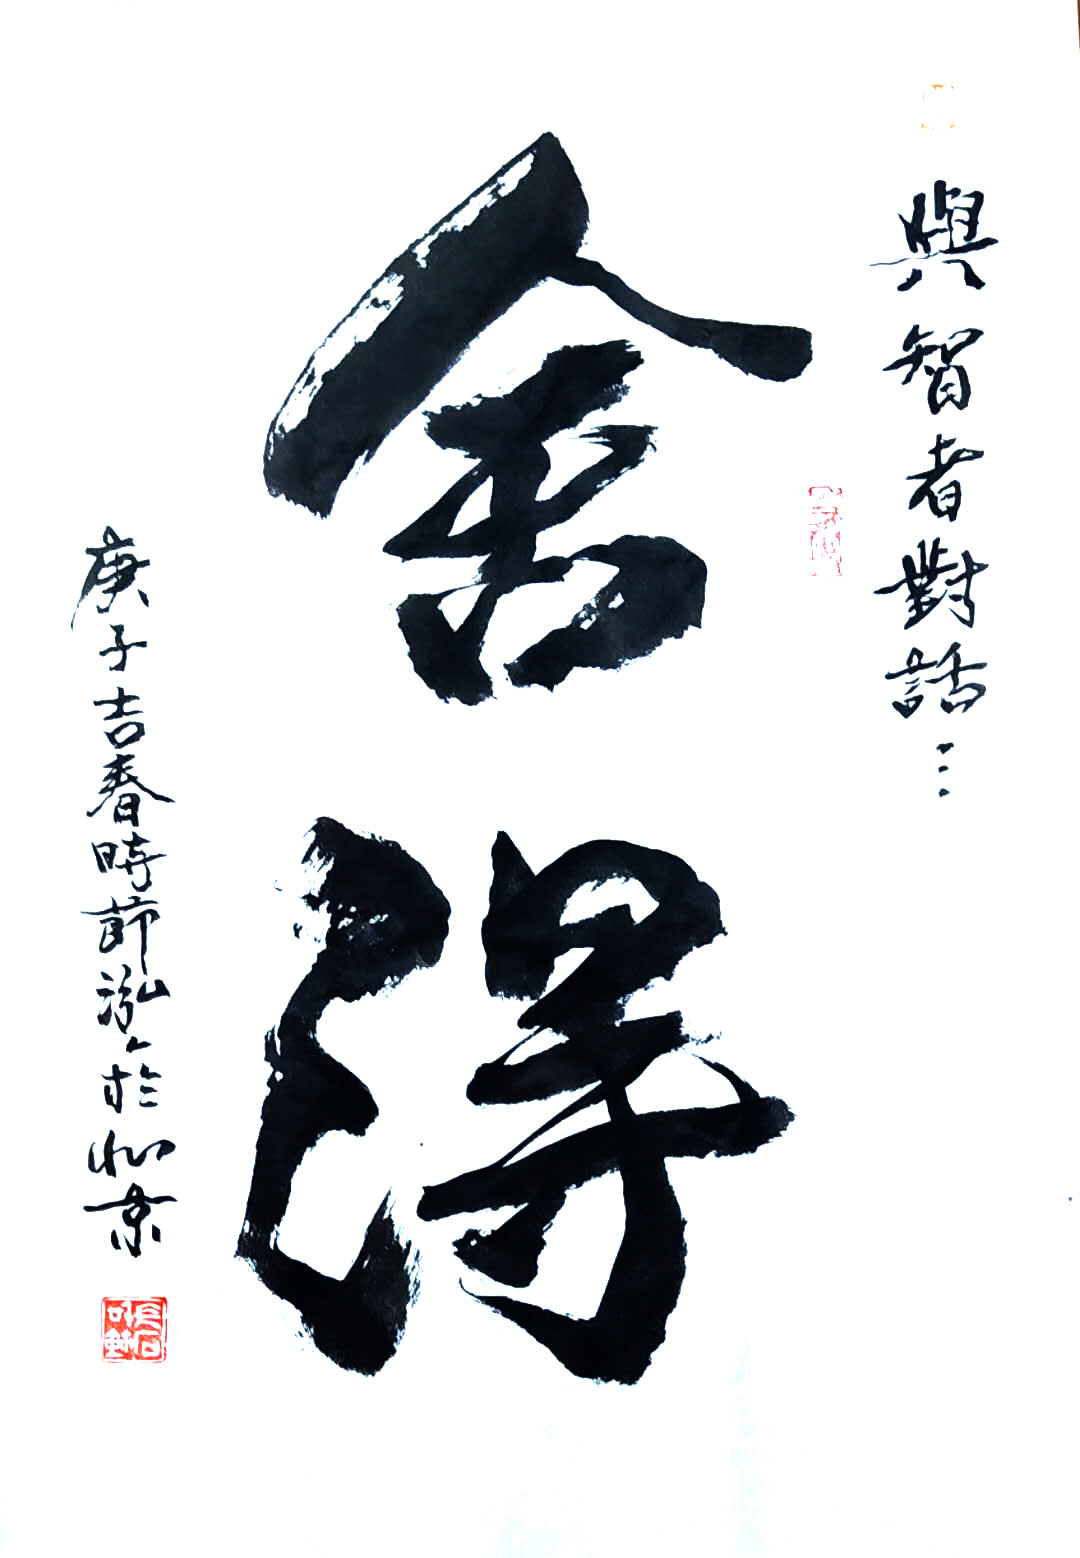 與智者對話…
舍得
庚子吉春時節泓〻於北京